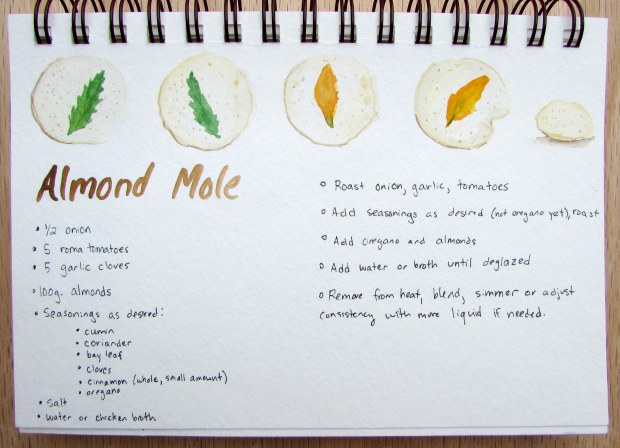 Almond Mole
• 1/2 onion
• 5 roma tomatoes
• 5 garlic cloves
• 100g. almonds
• Seasonings as desired:
• cumin
• coriander
• bay leaf
• cloves
• cinnamon (whole, small amount)
• oregano
• Salt
• water or chicken broth
○ Roast onion, garlic, tomatoes
○ Add seasonings as desired (not oregano yet), roast
○ Add oregano and almonds
○ Add water or broth until deglazed
○ Remove from heat, blend, simmer or adjust
consistency with more liquid if needed.